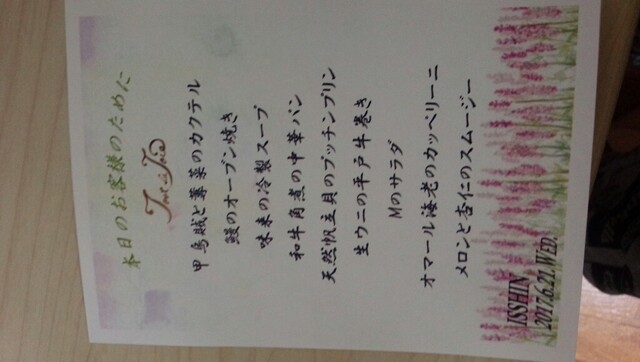 本日のお客様のために
甲烏賊と蓴菜のカクテル
鰻のオーブン焼き
味来の冷製スープ
和牛角煮の中華パン
天然帆立貝のプッチンプリン
生ウニの平戸牛巻き
Mのサラダ
オマール海老のカッペリーニ
メロンと杏仁のスムージー
ISSHIN
2017.6.21.WED.